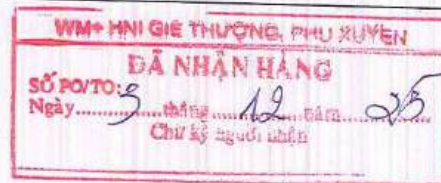 WM+ HNI GIE THƯỢNG, PHU XUYEN
ĐÃ NHẬN HÀNG
SỐ PO/TO:
Ngày 3 tháng 12 năm 25
Chữ ký người nhận